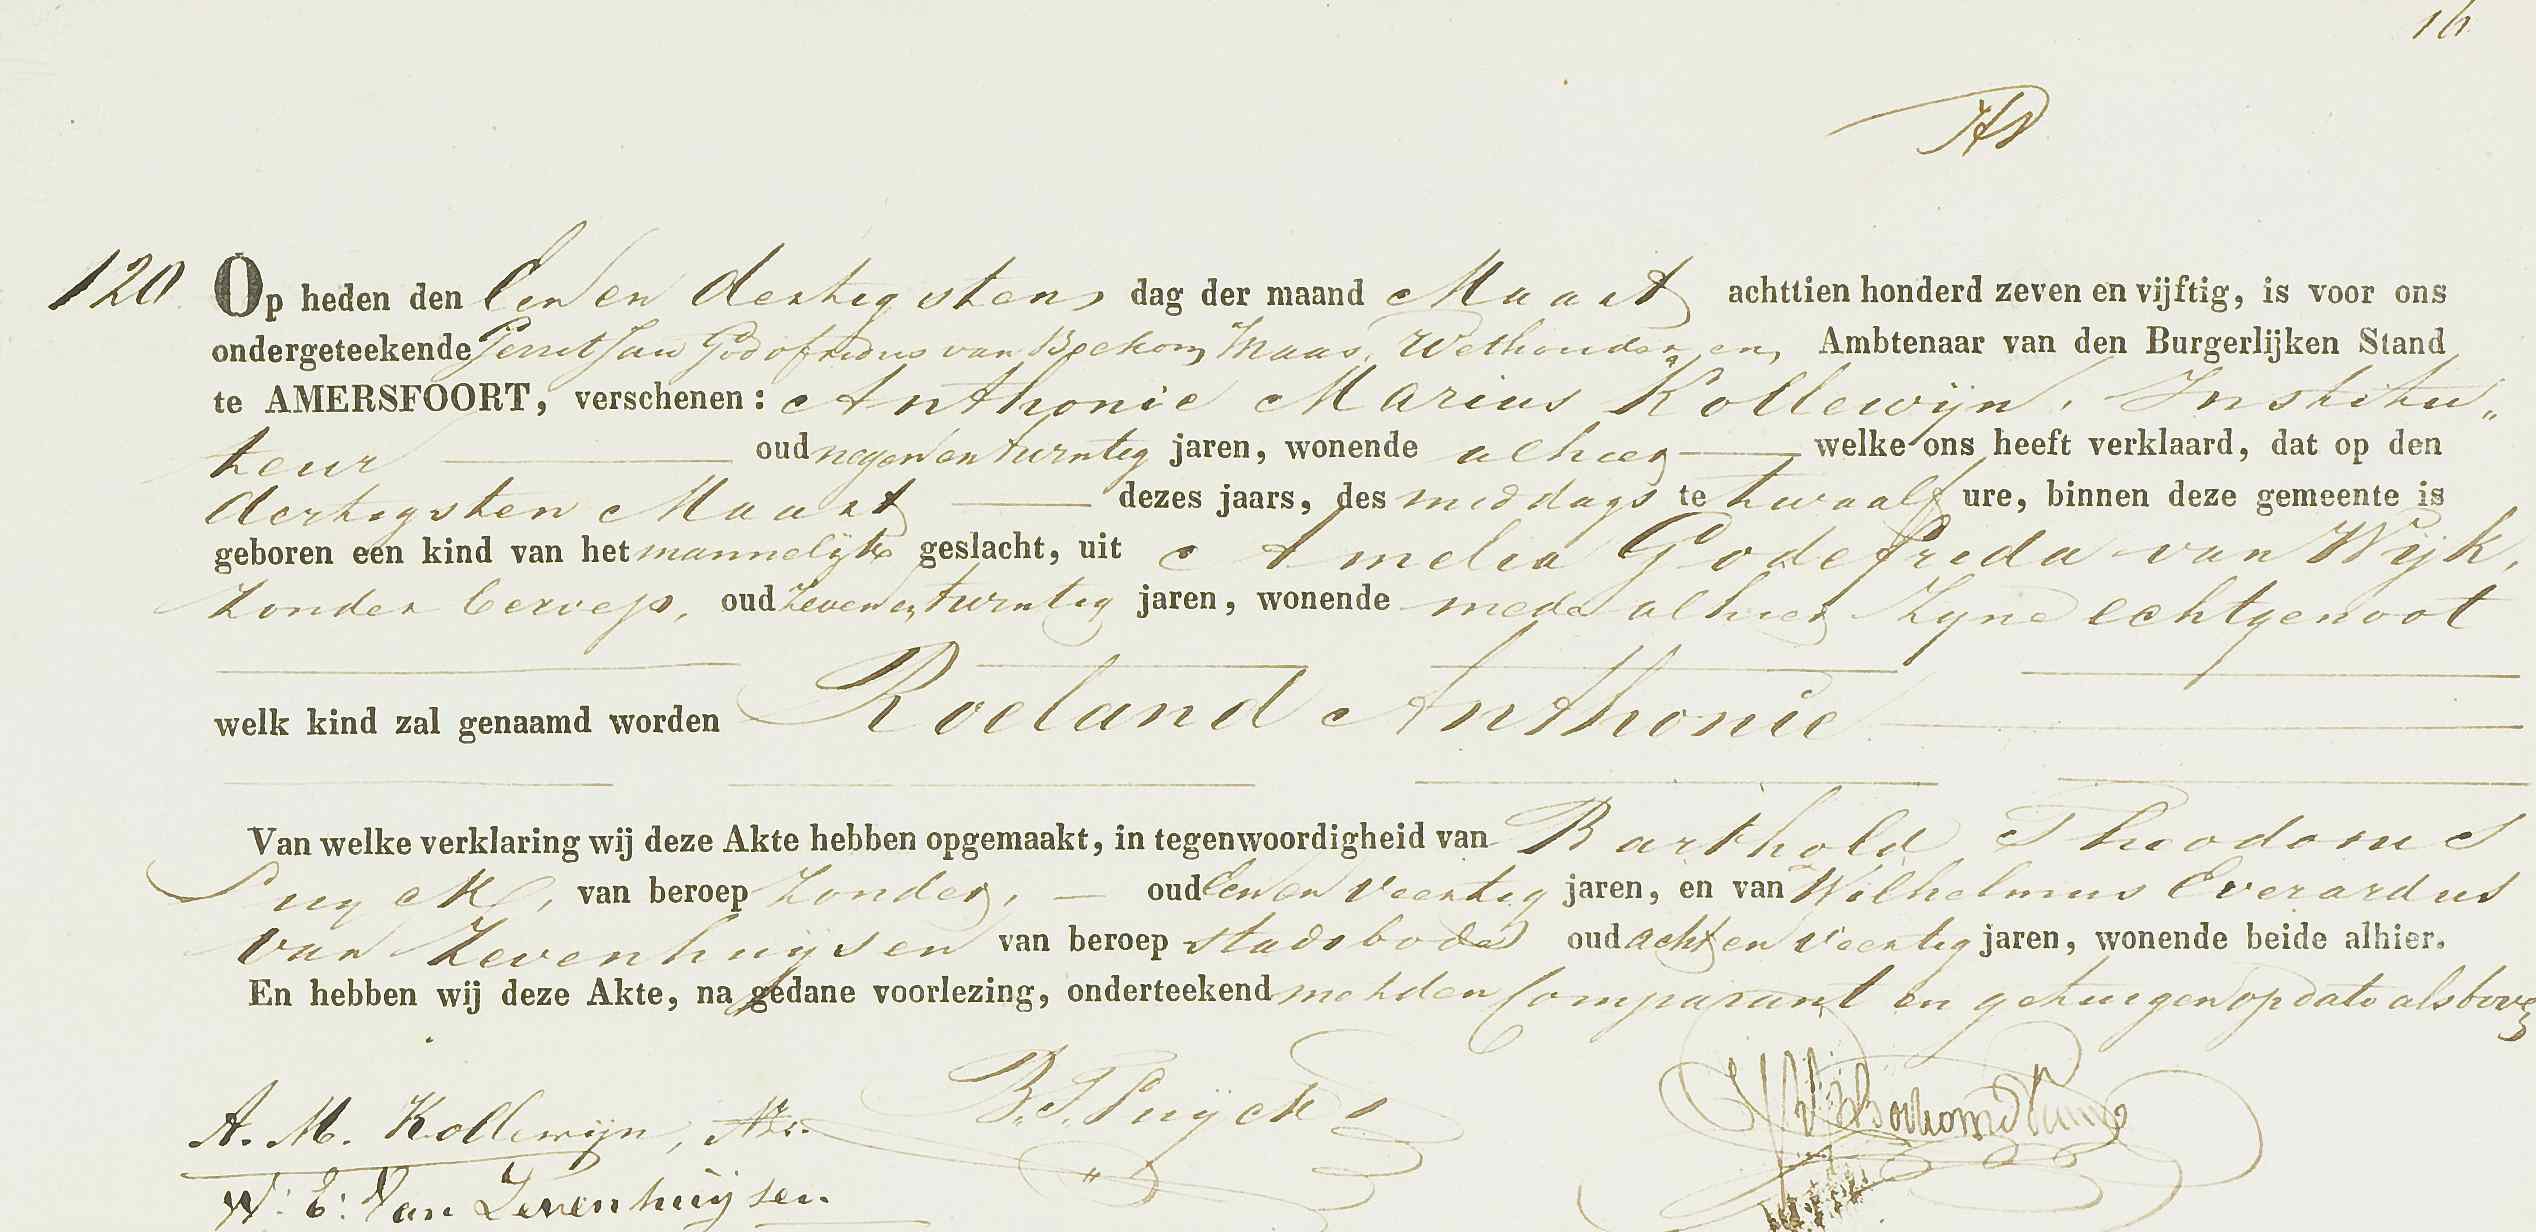 16
120 Op heden den Een en dertigsten dag der maand Maart achttien honderd zeven en vijftig, is voor ons
ondergeteekende Gerrit Jan Godofridus van Beekom Maas, Wethouder en, Ambtenaar van den Burgerlijken Stand
te AMERSFOORT, verschenen: Anthonie Marius Kollewijn, Institu„
teur oud negen en twintig jaren, wonende alhier welke ons heeft verklaard, dat op den
dertigsten Maart dezes jaars, des middags te twaalf ure, binnen deze gemeente is
geboren een kind van het mannelijke geslacht, uit Amelia Godefrida van Wijk,
zonder beroep, oud zeven en twintig jaren, wonende mede alhier zijne echtgenoot
welk kind zal genaamd worden Roeland Anthonie
Van welke verklaring wij deze Akte hebben opgemaakt, in tegenwoordigheid van Barthold Theodorus
Puyck, van beroep zonder, oud Een en veertig jaren, en van Wilhelmus Everardus
van Zevenhuijsen van beroep stadsbode oud acht en veertig jaren, wonende beide alhier.
En hebben wij deze Akte, na gedane voorlezing, onderteekend met den Comparant en getuigen op dato als boven
A. M. Kollewijn, Nz. B. T. Puijck
W: E: Van Zevenhuijsen.